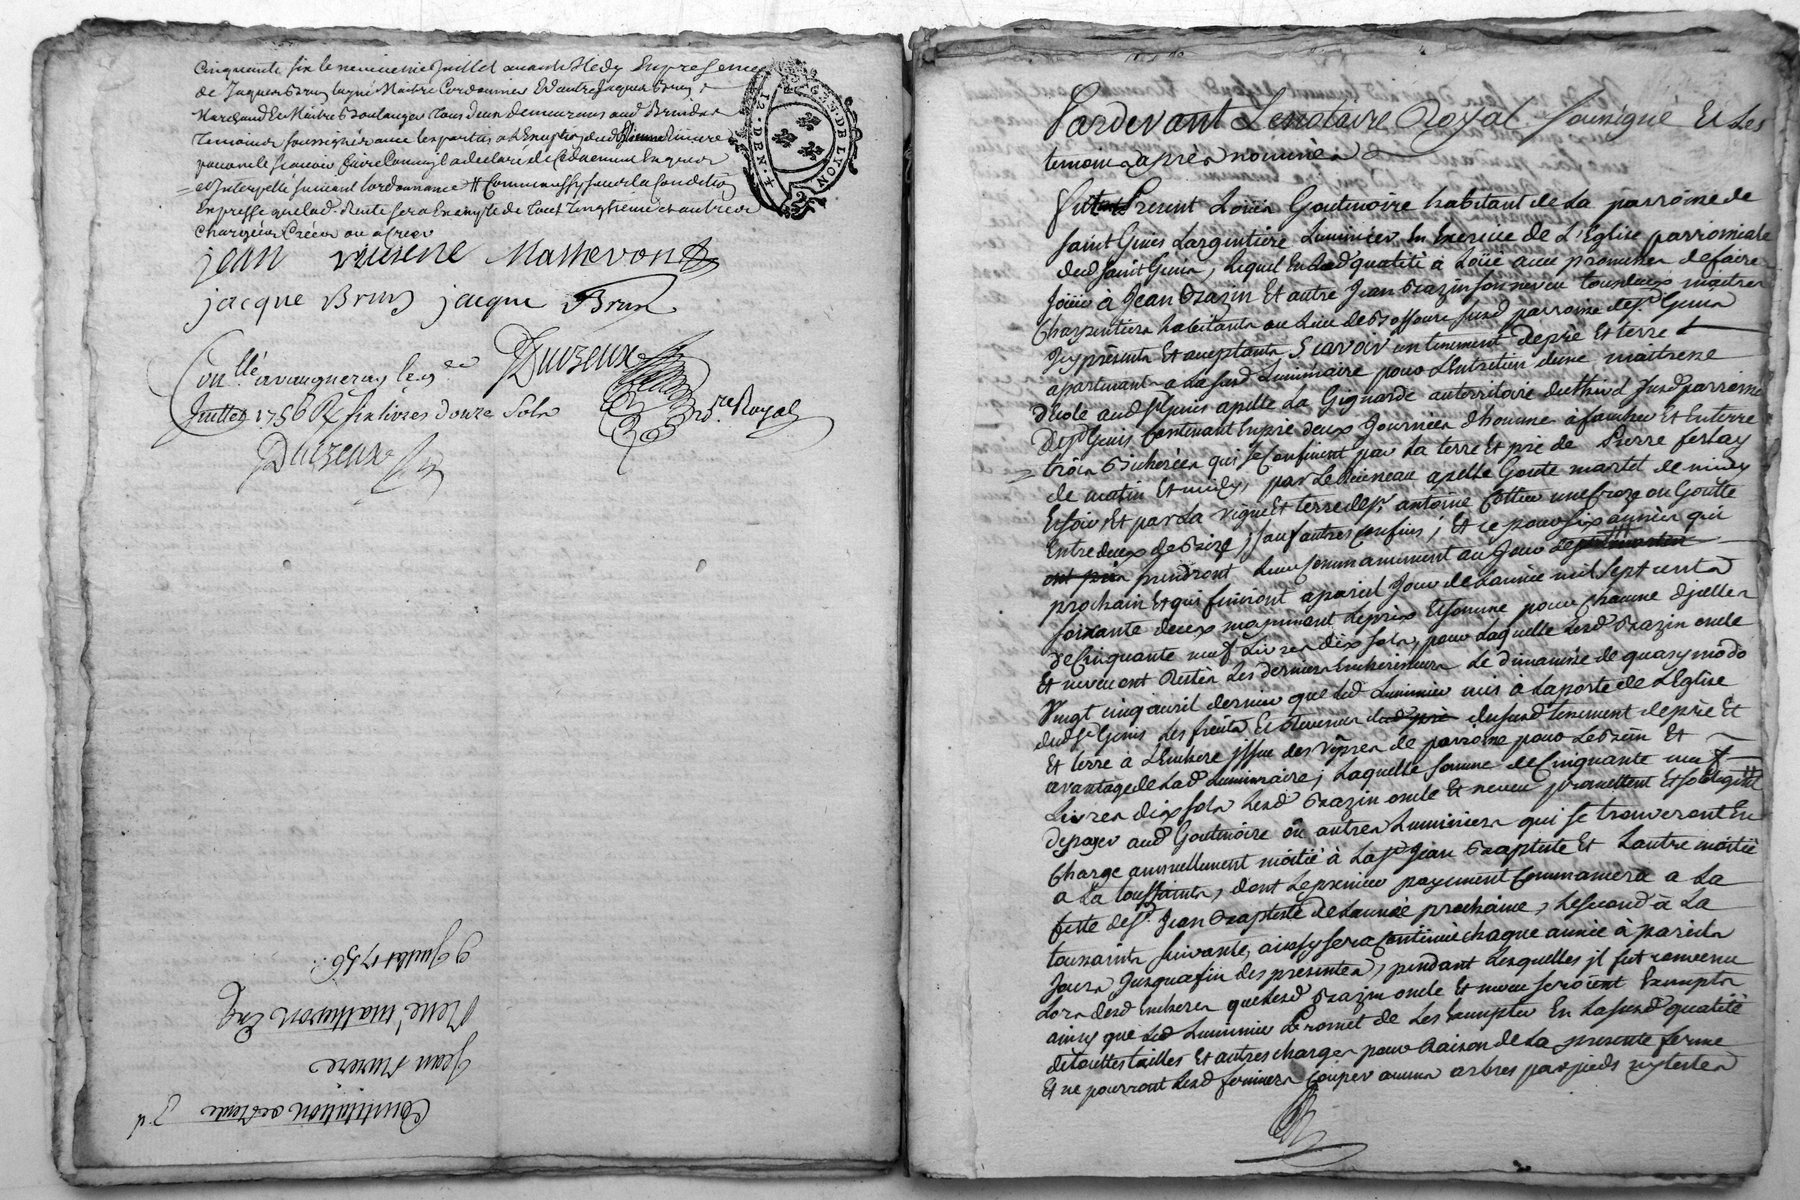 Cinquante six le neuvieme Juillet avant Midy En presence
de Jaques Brun layné Maitre Cordonnier Et d'autre Jaques Brun
Marchand Et Maitre Boulanger tous deux demeurans aud Brindas
temoins soussignés avec les parties
pour ne le scavoir faire comme il a declaré de ce duement Enquis
et Interpellé suivant l'ordonnance # Comme aussy sous la Condition
Expresse que lad. Rente sera Exempte de tout Vingtieme et autres
Charges Créées ou a Créer
GEN. DE LYON
12. DEN.
jean riviere Mathevon
jacque Brun jacque Brun
Conllé a vaugneray le 9e
Duizeux
Juillet 1756 R six livres douze Sols
nore Royal
Duizeux
Constitution de Rente
Jean Riviere
Rene mathevon
9 Juillet 1756
Pardevant Le notaire Royal soussigné Et Les
temoins après nommés
fut Present Loüis Goutenoire habitant de La parroisse de
saint Genis Largentiere Luminier En Exercice de L'Eglise parroissiale
dud saint Genis, Lequel En lad qualité à Loüé avec promesse de faire
Joüir à Jean Brazin Et autre Jean Brazin son neveu tous deux maitres
Charpentiers habitants au Lieu de Boffours susd parroisse de st Genis
Icy présents Et aceptants Scavoir un tenement de prè Et terre
apartenant a La susd Luminaire pour L'Entretien d'une maitresse
d'école aud st Genis apellé La Gignarde au territoire du susd parroisse
De st Genis Contenant En prè deux Journées d'homme à faucher Et En terre
trois Bicherées qui se Confinent par La terre Et prè de Pierre ferlay
de matin Et midy, par Le Ruisseau apellé Goute martel de midy
Et soir, Et par La vigne Et terre de sr. antoine Cottier une croze ou Goutte
Entre deux de Bize, sauf autres Confins; Et ce pour six années qui
prendront Leur Commancement au Jour de
prochain Et qui finiront a pareil Jour de L'année mil sept cents
soixante deux moyennant Le prix Et somme pour Chacune d'jcelles
de Cinquante neuf Livres dix sols, pour Laquelle Lesd Brazin oncle
Et neveu ont Restés Les derniers Encherisseurs Le dimanche de quasymodo
Vingt cinq avril dernier que Led Luminier mis à La porte de L'Eglise
dud st Genis Les fruits Et Revenus dud prè du susd tenement de prè Et
Et terre à L'Enchere jssue des Vêpres de parroisse pour Le Bien Et
avantage de Lad Luminaire; Laquelle somme de Cinquante neuf
Livres dix sols Lesd Brazin oncle Et neveu promettent Et sobligent
de payer aud Goutenoire oû autres Luminiers qui se trouveront En
Charge annuellement moitié à La st Jean Baptiste Et Lautre moitié
a La toussaints, dont Le premier payement Commancera a La
fette de st. Jean Baptiste de L'année prochaine, Le second à La
toussaints suivante, ainsy sera Continué chaque année à pareils
Jours Jusqua fin des presentes, pendant Lesquelles jl fut convenu
Lors desd Encheres que Lesd Brazin oncle Et neveu seroient Exempts
ainsy que Led Luminier Promet de Les Exempter En La susd qualité
de touttes tailles Et autres charges pour Raison de La presente ferme
Et ne pourront Lesd fermiers couper aucuns arbres par pieds ny testes